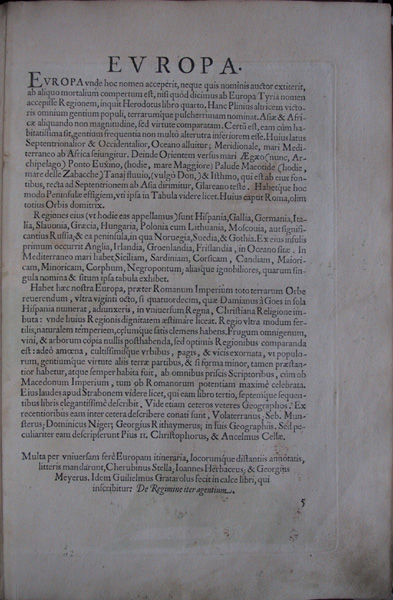 EVROPA.
EVROPA vnde hoc nomen acceperit, neque quis nominis auctor extiterit,
ab aliquo mortalium compertum est, nisi quòd dicimus ab Europa Tyria nomen
accepisse Regionem, inquit Herodotus libro quarto. Hanc Plinius altricem victo-
ris omnium gentium populi, terrarumque pulcherrimam nominat. Asiæ & Afri-
cæ aliquando non magnitudine, sed virtute comparatam. Certũ est, eam cùm ha-
bitatissima sit, gentium frequentia non multò alterutra inferiorem esse. Huius latus
Septentrionalior & Occidentalior, Oceano alluitur; Meridionale, mari Medi-
terraneo ab Africa seiungitur. Deinde Orientem versus mari Ægæo (nunc, Ar-
chipelago) Ponto Euxino, (hodie, mare Maggiore) Palude Mæotide (hodie,
mare delle Zabacche) Tanaj fluuio, (vulgò Don,) & Isthmo, qui est ab eius fon-
tibus, recta ad Septentrionem ab Asia dirimitur, Glareano teste. Habetque hoc
modo Peninsulæ effigiem, vti ipsa in Tabula videre licet. Huius caput Roma, olim
totius Orbis domitrix.
Regiones eius (vt hodie eas appellamus) sunt Hispania, Gallia, Germania, Ita-
lia, Slauonia, Græcia, Hungaria, Polonia cum Lithuania, Moscouia, aut signifi-
cantius Russia; & ea peninsula, in qua Noruegia, Suedia, & Gothia. Ex eius insulis
primum occurrit Anglia, Irlandia, Groenlandia, Frislandia, in Oceano sitæ. In
Mediterraneo mari habet, Siciliam, Sardiniam, Corsicam, Candiam, Maiori-
cam, Minoricam, Corphum, Negropontum, aliasque ignobiliores, quarum sin-
gula nomina & situm ipsa tabula exhibet.
Habet hæc nostra Europa, præter Romanum Imperium toto terrarum Orbe
reuerendum, vltra viginti octo, si quatuordecim, quæ Damianus à Goes in sola
Hispania numerat, adiunxeris, in vniuersum Regna, Christiana Religione im-
buta: vnde huius Regionis dignitatem æstimare liceat. Regio vltra modum fer-
tilis, naturalem temperiem, cælumque satis clemens habens. Frugum omnigenum,
vini, & arborum copia nullis posthabenda, sed optimis Regionibus comparanda
est: adeò amœna, cultissimisque vrbibus, pagis, & vicis exornata, vt populo-
rum, gentiumque virtute aliis terræ partibus, & si forma minor, tamen præstan-
tior habetur, atque semper habita fuit, ab omnibus priscis Scriptoribus, cùm ob
Macedonum Imperium, tum ob Romanorum potentiam maximè celebrata.
Eius laudes apud Strabonem videre licet, qui eam libro tertio, septemque sequen-
tibus libris elegantissimè describit. Vide etiam ceteros veteres Geographos. Ex
recentioribus eam inter cetera describere conati sunt, Volaterranus, Seb. Mun-
sterus, Dominicus Niger, Georgius Rithaymerus, in suis Geographiis. Sed pe-
culiariter eam descripserunt Pius II. Christophorus, & Ancelmus Cellæ.
Multa per vniuersam ferè Europam itineraria, locorumque distantiis annotatis,
litteris mandarunt, Cherubinus Stella, Ioannes Herbaceus, & Georgius
Meyerus. Idem Guilielmus Gratarolus fecit in calce libri, qui
inscribitur: De Regimine iter agentium.
5